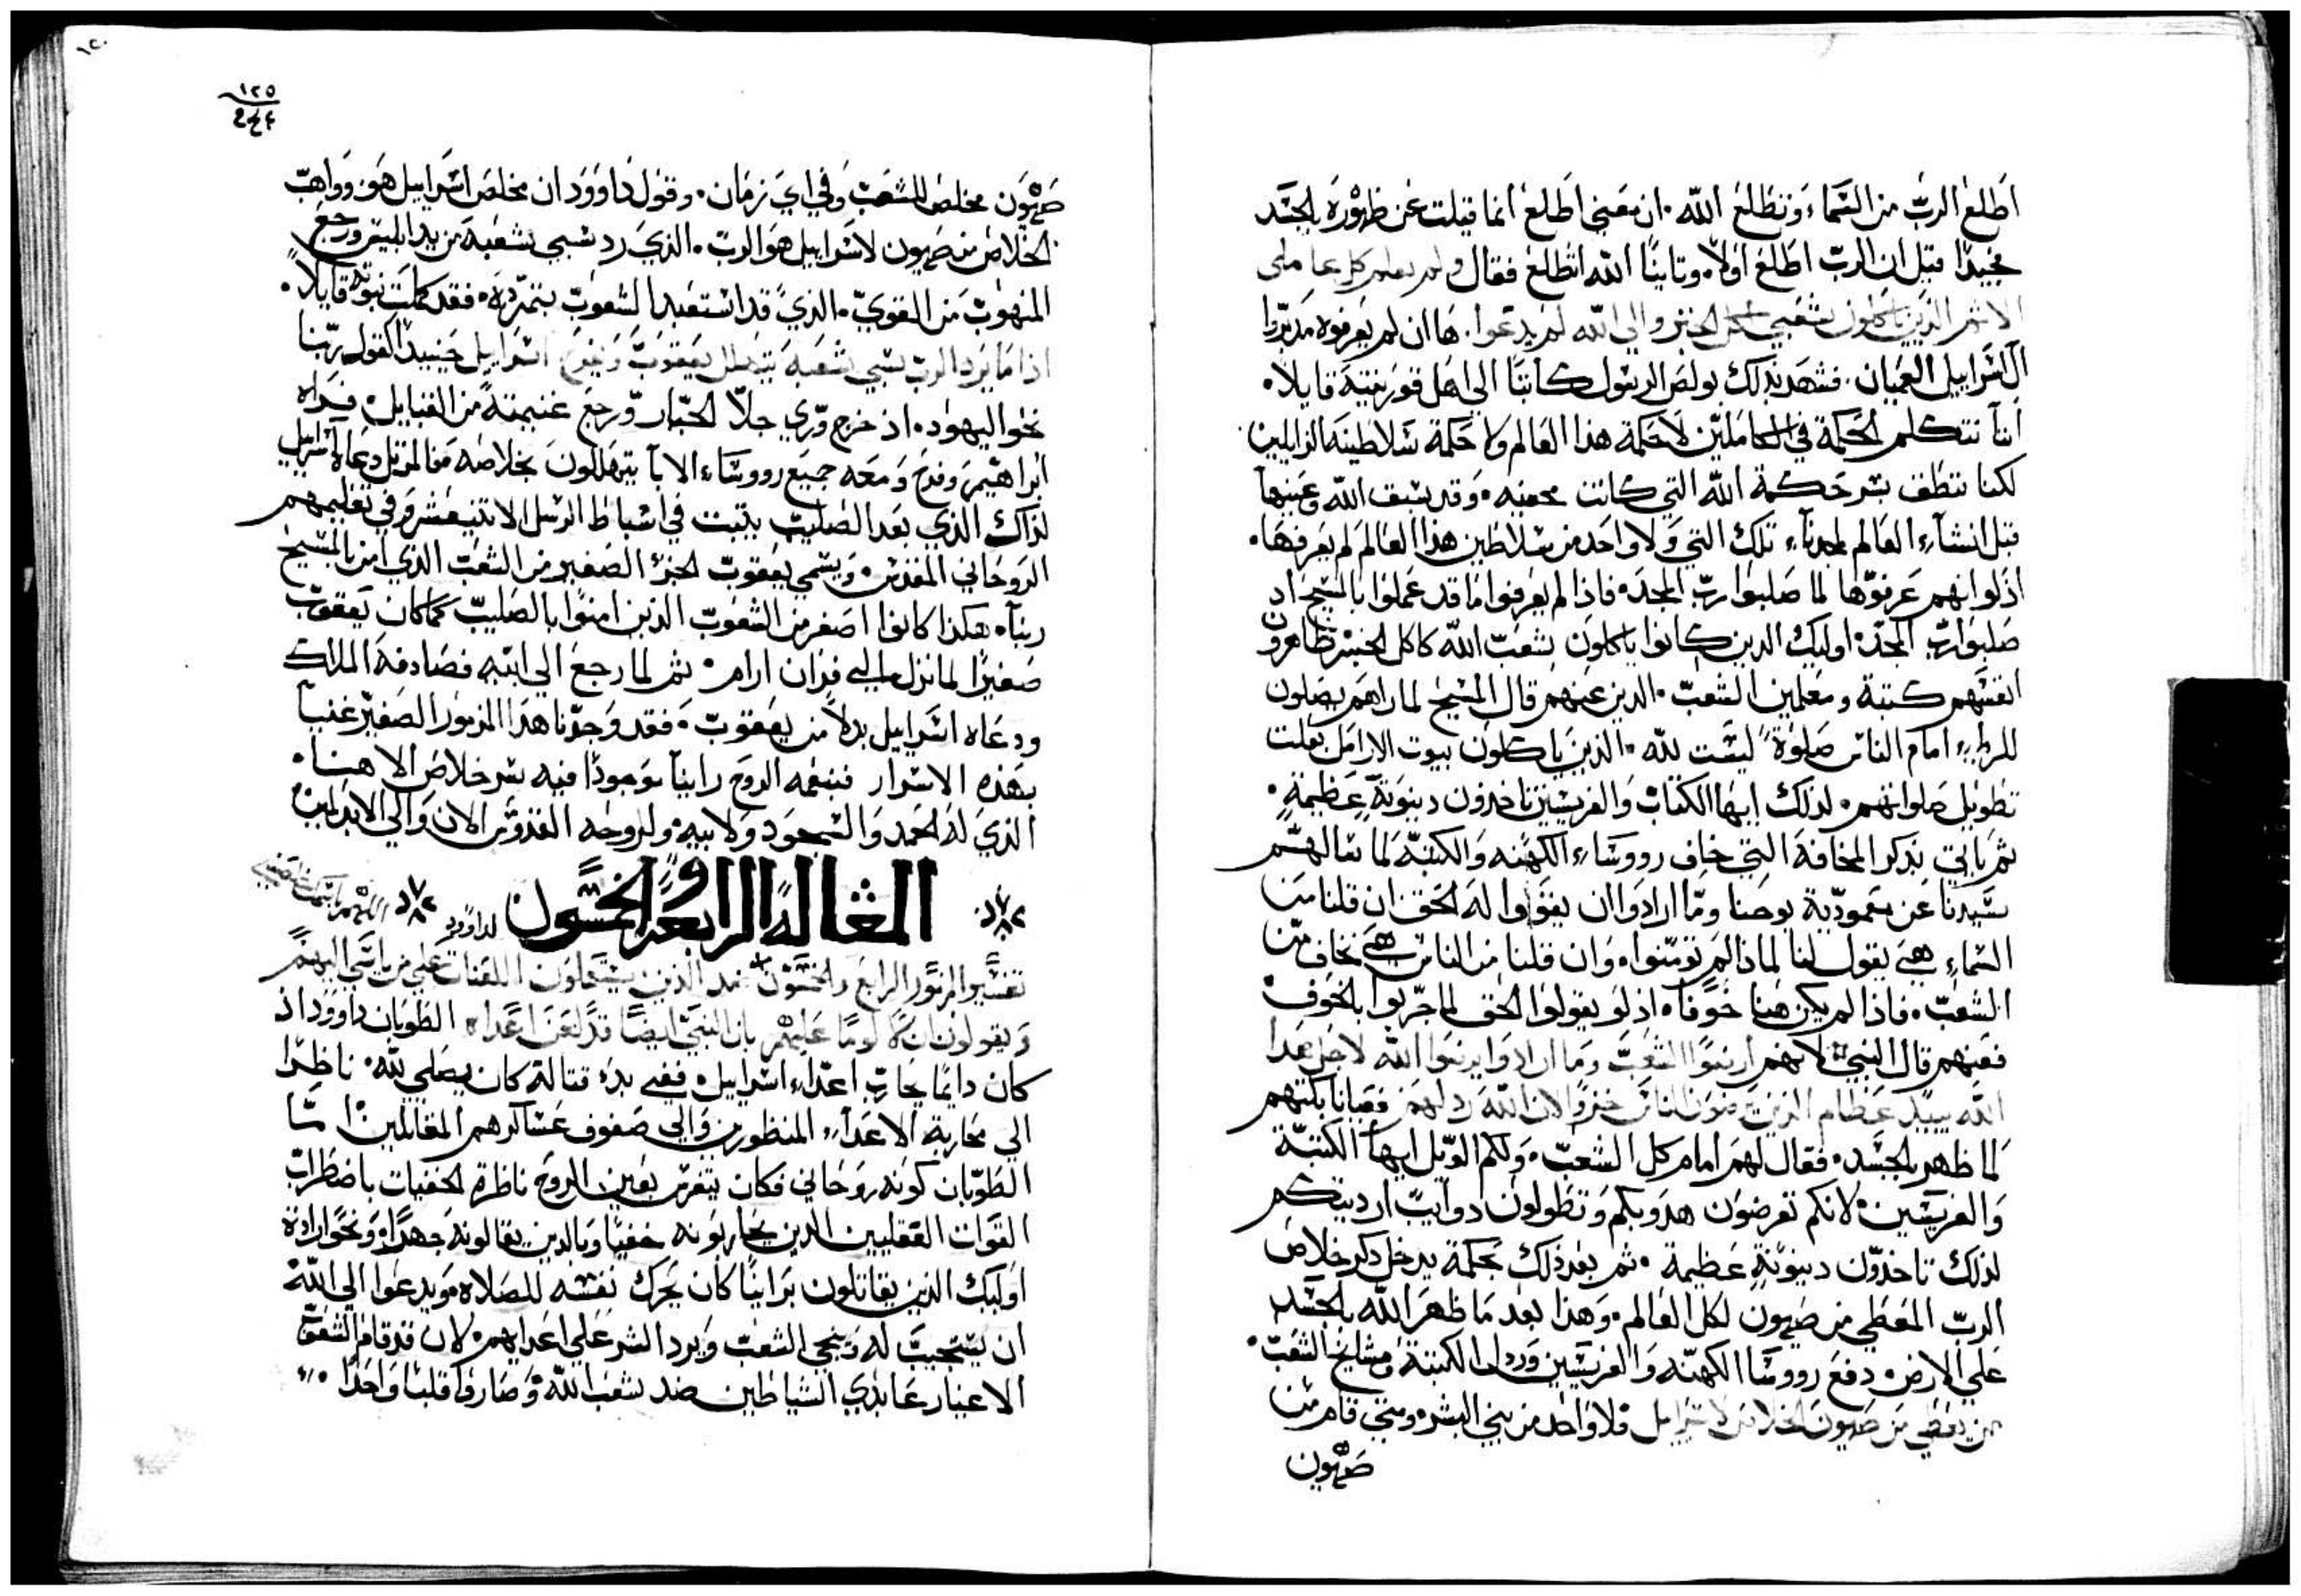 اطلع الرب من السماء، وتطلع الله. ان معني اطلع انما قيلت عن ظهوره بالجسد
مجيدًا قيل ان الرب اطلع اولاً. وثانيًا الله اتطلع فقال ولم يعلم كل عاملي
الاثم الذين ياكلون شعبي اكل الخبز والي الله لم يدعوا. ها ان لم يعرفوه مدبّروا
ال اسراييل العميان. فشهد بذلك بولص الرسول كاتبًا الي اهل قورنتية قايلاً.
اننا نتكلم الحكمة في الكاملين لا حكمة هذا العالم ولا حكمة سلاطينه الزايلين
لكننا ننطف بسر حكمة الله التي كانت مخفيه. وقد سبق الله وعينها
قبل انشآء العالم لمجدنآء تلك التي ولا واحد من سلاطين هذا العالم لم يعرفها.
اذ لو انهم عرفوها لما صلبوا ربّ المجد. فاذا لم يعرفوا ما قد عملوا بالمسيح اذ
صلبوا ربّ المجد. اوليك الدين كانوا ياكلون شعب الله كاكل الخبز ظاهرون
انفسهم كتبة ومعلمين الشعب. الدين عنهم قال المسيح لما راهم يصلون
للريا، امام الناس صلوة ليست لله. الذين ياكلون بيوت الارامل بعلت
تطويل صلواتهم. لذلك ايها الكتاب والفريسيين تاخدون دينونة عظيمة.
ثم ياتي بذكر المخافة التي خاف رووساء الكهنه والكتبة لما سالهم
سيدنا عن معمودية يوحنا وما ارادوا ان يقولوا له الحق ان قلنا من
السماء هي يقول لنا لماذا لم تومنوا. وان قلنا من الناس هي نخاف من
الشعب. فاذا لم يكن هنا خوفًا. اذ لو يقولوا الحق لما جربوا بالخوف
فعنهم قال النبي لانهم ارضوا الشعب وما ارادوا يرضوا الله لاجل هدا
الله يبدد عظام الذين يرضون الناس خزوا لان الله رذلهم فعيانا بكتهم
لما ظهر بالجسد. فقال لهم امام كل الشعب. ولكم الويل ايها الكتبة
والفريسيين. لانكم تعرضون هدوبكم وتطولون دوايب ارديتكم
لذلك تاخذون دينونة عظيمة. ثم بعد ذلك بحكمة يدخل دكر خلاص
الرب المعطي من صهيون لكل العالم. وهذا بعد ما ظهر الله بالجسد
علي الارض. دفع رووسا الكهنه والفريسيين ورذل الكتبة ومشايخ الشعب.
من يعطي من صهيون الخلاص لاسراييل فلا واحد من بني البشر. ومتي قام من
صهيون
١٢٥
صهيون مخلص للشعب وفي اي زمان. وقول داوود ان مخلص اسراييل هو. وواهب
الخلاص من صهيون لاسراييل هو الرب. الذي رد سبي شعبه من يد ابليس ورجع
المنهوب من القوي. الذي قد استعبد الشعوب بتمرده. فقد كملت نبوته قايلاً.
اذا ما يرد الرب سبي شعبه يتهلل يعقوب ويفرح اسراييل حينيذ القول ربّنا
نحو اليهود. اذ خرج وري جلا الجبار ورجع غنيمته من القبايل. فراه
ابراهيم وفرح ومعه جميع رووساء الابآ يتهللون بخلاصه فالمرتل دعا اسراييل
لذاك الذي بعد الصليب يثبت في اسباط الرسل الاثنيعشر وفي تعليمهم
الروحاني المقدس. ويسمي يعقوب الحزب الصغير من الشعب الذي امن بالمسيح
ربنآ. هكذا كانوا اصغر من الشعوب الذين امنوا بالصليب كما كان يعقوب
صغيرًا لما نزل الي فدان ارام. ثم لما رجع الي ابيه فصادفه الملاك
ودعاه اسراييل بدلاً من يعقوب. فقد وجدنا هذا المزمور الصغير غنيآ
بهذه الاسرار فبنعمه الروح راينآ موجودًا فيه سر خلاص الاهنا.
الذي له الحمد والسجود ولابيه. ولروحه القدوس الان والي الابد امين
المقالة الرابعة والخمسون لداوود
تفسير المزمور الرابع والخمسون ضد الذين يستعملون اللعنات علي من ياسي اليهم
ويقولون ان لا لومًا عليهم بان النبي ايضًا قد لعن اعداه الطوبان داوود اذ
كان دايمًا يحارب اعداء اسراييل. ففي بدء قتاله كان يصلي لله. ناظرًا
الي محاربة الاعدآء المنظورين والي صفوف عساكرهم المقاتلين. امّا
الطوبان كونه روحاني فكان يتفرس بعين الروح ناظرة الخفيات باضطراب
القوات العقليين الدين يحاربونه خفيًا وبالدين يقاتلونه جهدًا. ونحو ارادة
اوليك الذين يقاتلون برانيًا كان يحرك نفسه للصلاه. ويدعوا الي الله
ان يستجيب له وينجي الشعب ويرد الشر علي اعدايهم. لان قد قام الشعوب
الاغيار عابدي الشياطين ضد شعب الله وصاروا قلبًا واحدًا.